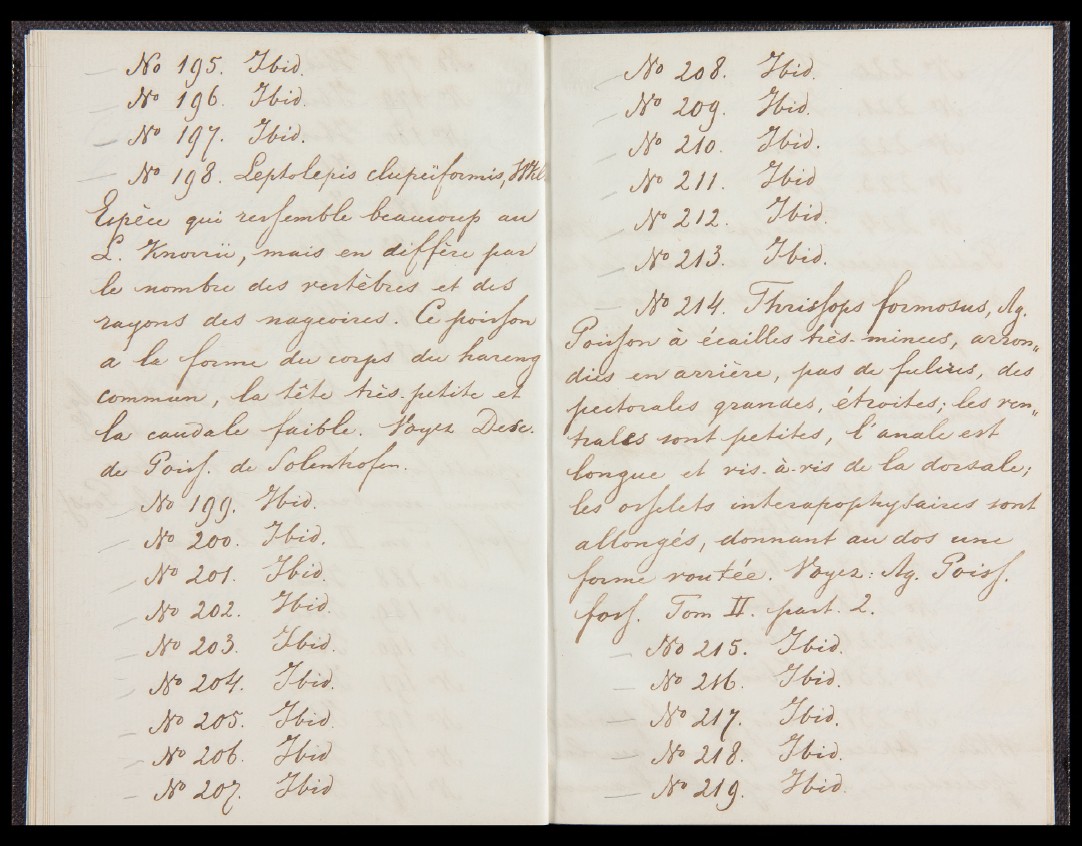 — No 195. Ibid.
— No 196. Ibid.
— No 197. Ibid.
— No 198. Leptolepis clupeiformis,
Espèce qui ressemble beaucoup au
L. Knorrii, mais en diffère par
le nombre des vertèbres et des
rayons des nageoires. Ce poisson
a la forme du corps du hareng
commun, la tête très-petite et
la caudale faible. Voyez Desc.
de Poiss. de Solenhofen.
— No 199. Ibid.
— No 200. Ibid.
— No 201. Ibid.
— No 202. Ibid.
— No 203. Ibid.
— No 204. Ibid.
— No 205. Ibid.
— No 206. Ibid
— No 207. Ibid
— No 208. Ibid.
— No 209. Ibid.
— No 210. Ibid.
— No 211. Ibid
— No 212. Ibid.
— No 213. Ibid.
— No 214. Thrissops formosus, Ag.
Poisson à écailles très-minces, arron„
dies en arrière, pas de fulcres, des
pectorales grandes, étroites; les ven„
trales sont petites, l'anale est
longue et vis-à-vis de la dorsale;
les osselets interapophysaires sont
allongés, donnant au dos une
forme voutée. Voyez: Ag. Poiss.
foss. Tom II. part. 2.
— No 215. Ibid.
— No 216. Ibid.
— No 217. Ibid.
— No 218. Ibid.
— No 219. Ibid.